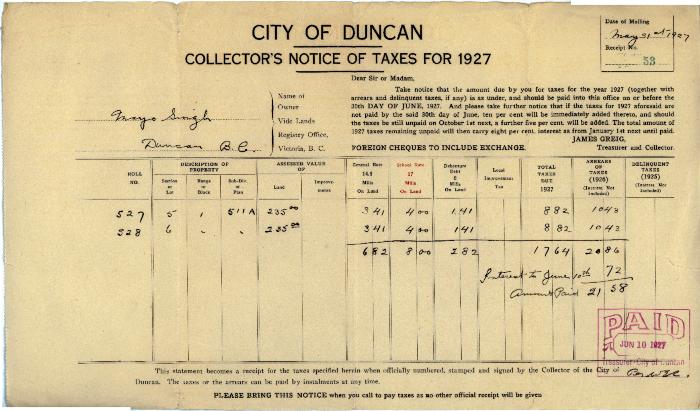 CITY OF DUNCAN
COLLECTOR'S NOTICE OF TAXES FOR 1927
Date of Mailing
May 31st 1927
Receipt No. 53
Dear Sir or Madam,
Take notice that the amount due by you for taxes for the year 1927 (together with
arrears and delinquent taxes, if any) is as under, and should be paid into this office on or before the
30th DAY OF JUNE, 1927. And please take further notice that if the taxes for 1927 aforesaid are
not paid by the said 30th day of June, ten per cent will be immediately added thereto, and should
the taxes be still unpaid on October 1st next, a further five per cent will be added. The total amount of
1927 taxes remaining unpaid will then carry eight per cent. interest as from January 1st next until paid.
JAMES GREIG,
FOREIGN CHEQUES TO INCLUDE EXCHANGE. Treasurer and Collector.
Mayo Singh
Duncan B.C.
Name of
Owner
Vide Lands
Registry Office,
Victoria, B. C.
ROLL NO.
DESCRIPTION OF PROPERTY
Section or Lot
Range or Block
Sub-Div. or Plan
ASSESSED VALUE OF
Land
Improve-ments
General Rate 14.5 Mills On Land
School Rate 17 Mills On Land
Debenture Debt 6 Mills On Land
Local Improvement Tax
TOTAL TAXES DUE 1927
ARREARS OF TAXES (1926) (Interest Not Included)
DELINQUENT TAXES (1925) (Interest Not Included)
527 5 1 511A 235 00 3 41 4 00 1 41 8 82 10 43
528 6 " " 235 00 3 41 4 00 1 41 8 82 10 43
6 82 8 00 2 82 17 64 20 86
Interest to June 10th 72
Amount Paid 21 58
PAID
JUN 10 1927
Treasurer-City of Duncan
This statement becomes a receipt for the taxes specified herein when officially numbered, stamped and signed by the Collector of the City of
Duncan. The taxes or the arrears can be paid by instalments at any time.
PLEASE BRING THIS NOTICE when you call to pay taxes as no other official receipt will be given